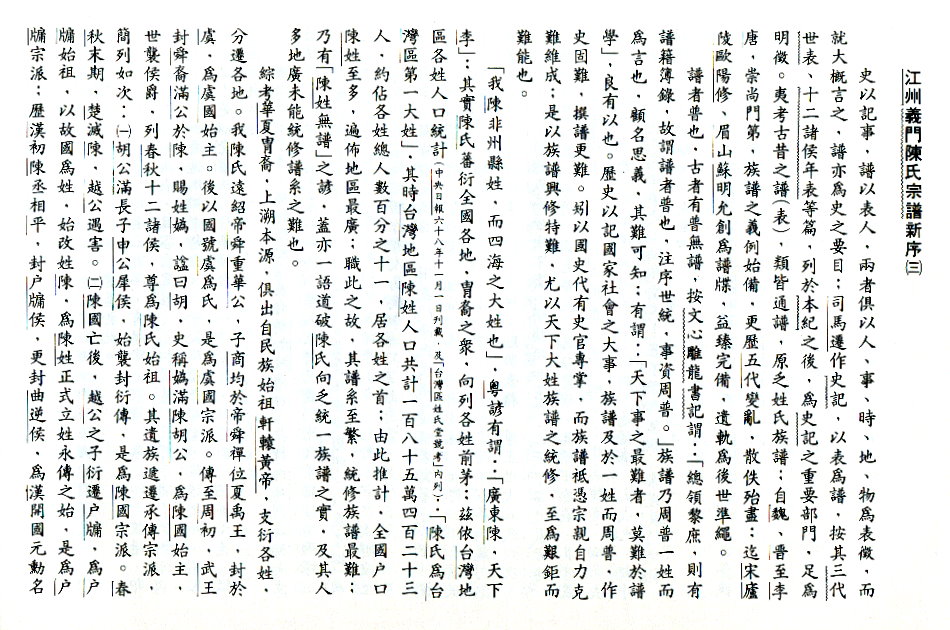 江州義門陳氏宗譜新序㈢
史以記事，譜以表人，兩者俱以人、事、時、地、物為表徵，而
就大概言之，譜亦為史之要目；司馬遷作史記，以表為譜，按其三代
世表、十二諸侯年表等篇，列於本紀之後，為史記之重要部門，足為
明徵。夷考古昔之譜（表），類皆通譜，原之姓氏族譜；自魏、晉至李
唐，崇尚門第，族譜之義例始備，更歷五代變亂，散佚殆盡；迄宋廬
陵歐陽修、眉山蘇明允創為譜牒，益臻完備，遺軌為後世準繩。
譜者普也，古者有普無譜，按文心雕龍書記謂：「總領黎庶，則有
譜籍簿錄，故謂譜者普也，注序世統，事資周普。」族譜乃周普一姓而
為言也，顧名思義，其難可知；有謂：「天下事之最難者，莫難於譜
學」，良有以也。歷史以記國家社會之大事，族譜及於一姓而周普，作
史固難，撰譜更難。矧以國史代有史官專掌，而族譜祗憑宗親自力克
難維成；是以族譜興修特難，尤以天下大姓族譜之統修，至為艱鉅而
難能也。
「我陳非州縣姓，而四海之大姓也」，粵諺有謂：「廣東陳，天下
李」；其實陳氏蕃衍全國各地，胄裔之眾，向列各姓前茅；茲依台灣地
區各姓人口統計（中央日報六十八年十一月一日列載，及「台灣區姓氏堂號考」內列）：「陳氏為台
灣區第一大姓」，其時台灣地區陳姓人口共計一百八十五萬四百二十三
人，約佔各姓總人數百分之十一，居各姓之首；由此推計，全國戶口
陳姓至多，遍佈地區最廣；職此之故，其譜系至繁，統修族譜最難；
乃有「陳姓無譜」之諺，蓋亦一語道破陳氏向之統一族譜之實，及其人
多地廣未能統修譜系之難也。
綜考華夏胄裔，上溯本源，俱出自民族始祖軒轅黃帝，支衍各姓，
分遷各地。我陳氏遠紹帝舜重華公，子商均於帝舜禪位夏禹王，封於
虞，為虞國始主。後以國號虞為氏，是為虞國宗派。傳至周初，武王
封舜裔滿公於陳，賜姓媯，諡曰胡，史稱媯滿陳胡公，為陳國始主，
世襲侯爵，列春秋十二諸侯，尊為陳氏始祖。其遺族遞遷承傳宗派，
簡列如次：㈠胡公滿長子申公犀侯，始襲封衍傳，是為陳國宗派。春
秋末期，楚滅陳，越公遇害。㈡陳國亡後，越公之子衍遷戶牖，為戶
牖始祖，以故國為姓，始改姓陳，為陳姓正式立姓永傳之始，是為戶
牖宗派；歷漢初陳丞相平，封戶牖侯，更封曲逆侯，為漢開國元勳名